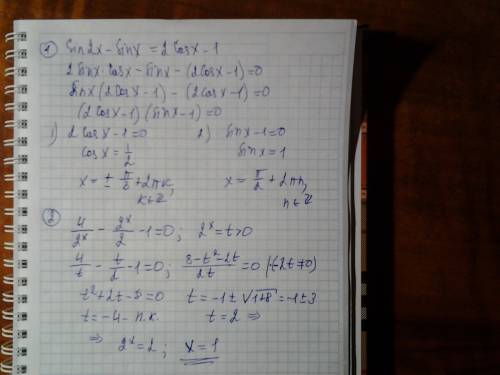 ① sin2x − sinx = 2cosx − 1
2sinx·cosx − sinx − (2cosx − 1) = 0
sinx(2cosx − 1) − (2cosx − 1) = 0
(2cosx − 1)(sinx − 1) = 0
1) 2cosx − 1 = 0 2) sinx − 1 = 0
cosx = 1/2 sinx = 1
x = ± π/3 + 2πk, k∈Z x = π/2 + 2πn, n∈Z
② 4/2ˣ − 2ˣ/2 − 1 = 0; 2ˣ = t > 0
4/t − t/2 − 1 = 0; (8 − t² − 2t)/2t = 0 |·(−2t ≠ 0)
t² + 2t − 8 = 0 t = −1 ± √(1+8) = −1 ± 3
t = −4 − п.к. t = 2 ⇒
⇒ 2ˣ = 2; x = 1